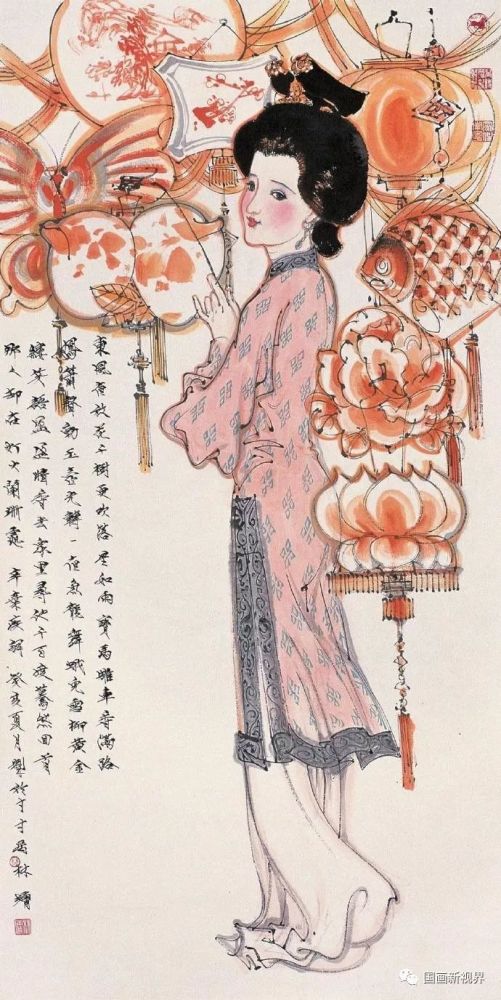 東風夜放花千樹更吹落星如雨寶馬雕車香滿路
鳳簫聲動玉壺光轉一夜魚龍舞蛾兒雪柳黃金
縷笑語盈盈暗香去衆里尋他千百度驀然回首
那人却在灯火闌珊處 辛棄疾詞 癸亥夏月 於寸寸 林墉
国画新视界